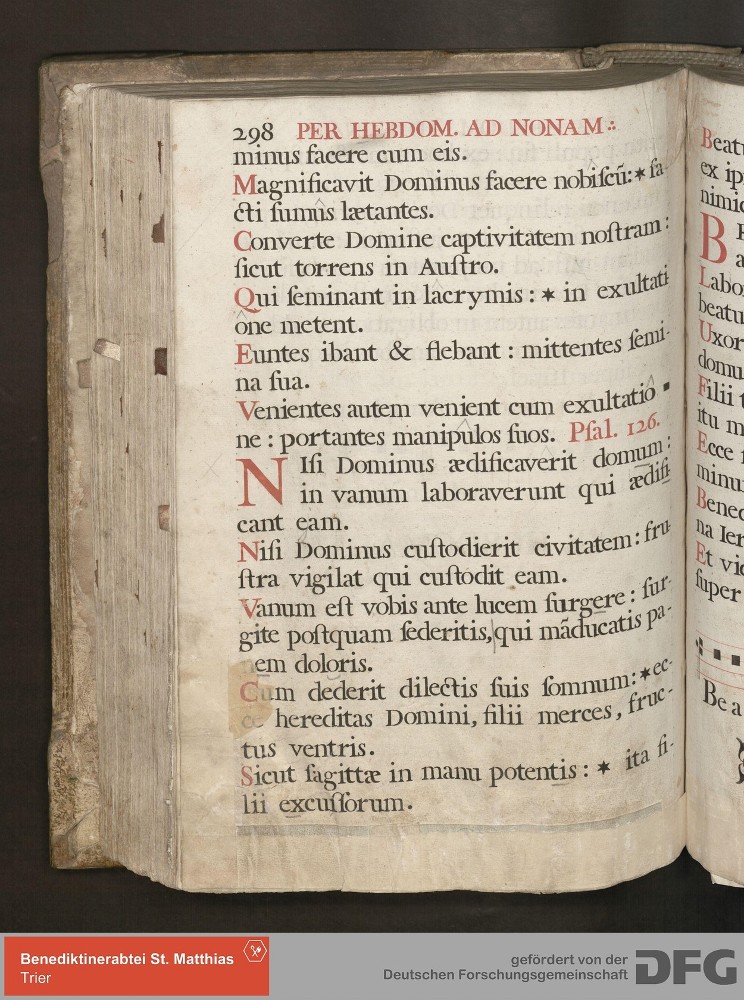 298 PER HEBDOM. AD NONAM :·
minus facere cum eis.
Magnificavit Dominus facere nobiſcũ: * fa-
cti ſumûs lætantes.
Converte Domine captivitatem noſtram :
ſicut torrens in Auſtro.
Qui ſeminant in lâcrymis : * in exultati
one metent.
Euntes ibant & flebant : mittentes ſemi-
na ſua.
Venientes autem venient cum exultatiô
ne : portantes manipulos ſuos. Pſal. 126.
NIſi Dominus ædificaverit domum :
in vanum laboraverunt qui ædifi
cant eam.
Niſi Dominus cuſtodierit civitatem : fru
ſtra vigilat qui cuſtodit eam.
Vanum eſt vobis ante lucem ſurgere : ſur-
gite poſtquam ſederitis, qui mãducatis pa-
nem doloris.
Cum dederit dilectis ſuis ſomnum : * ec-
ce hereditas Domini, filii merces, fruc-
tus ventris.
Sicut ſagittæ in manu potentis : * ita fi-
lii excuſſorum.
Beat
ex ip
nimic
B
Labo
beatu
Uxor
domu
Filii t
itu m
Ecce
minu
Bened
na Ier
Et vi
ſuper
Be a
Benediktinerabtei St. Matthias
Trier
gefördert von der
Deutschen Forschungsgemeinschaft
DFG